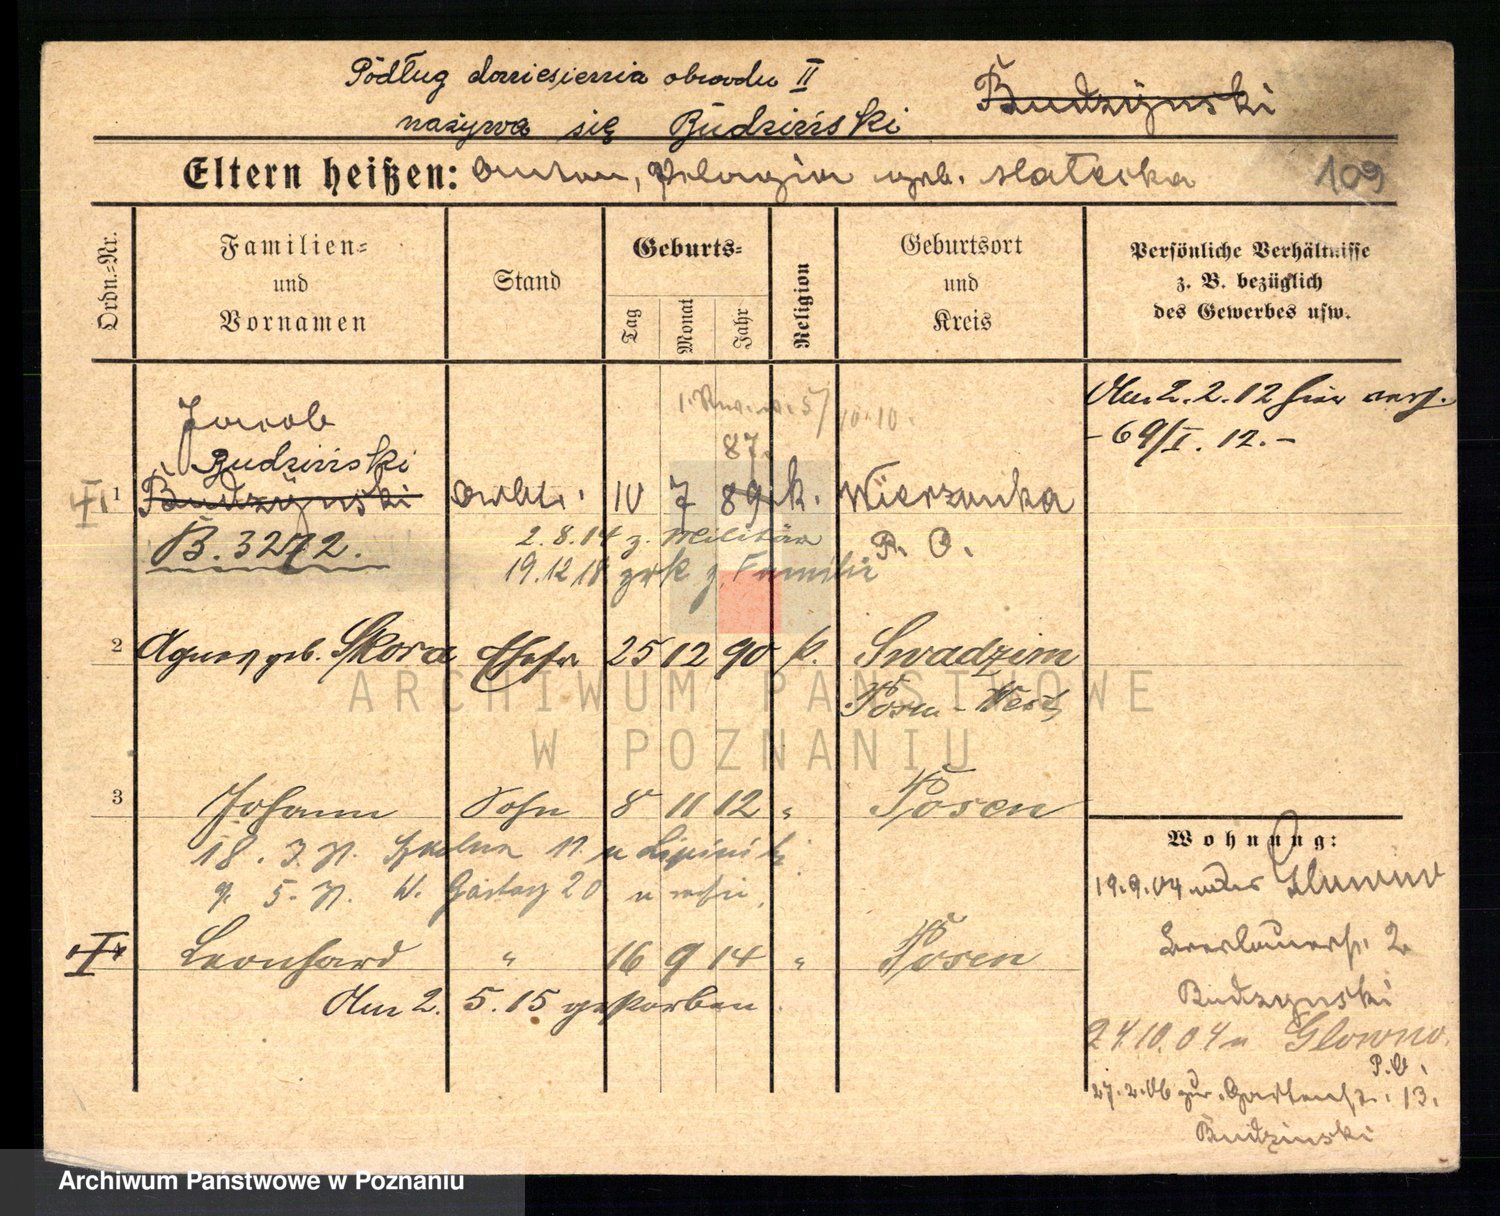 Podług doniesienia obwodu II
Budzÿnski
nazywa się Budziński
Eltern heißen: Anton, Pelagia geb. Małecka
109
Ordn.-Nr.
Familien-
und
Vornamen
Stand
Geburts-
Tag
Monat
Jahr
Religion
Geburtsort
und
Kreis
Persönliche Verhältnisse
z. B. bezüglich
des Gewerbes usw.
Am 2.2.12 hier
- 69/I. 12. -
10.10.
87.
Jacob
Budziński
1 Budzÿnski Arbtr. 10 7 89 k. Wierzonka
P. O.
B. 3272.
2.8.14 z. Militär
19.12.18 zrk z. Familie
2 Agnes geb. Skora Ehefr 25 12 90 k. Swadzim
Posen-West
3 Johann Sohn 8 11 12 " Posen
18. 3. 11
9. 5. 20
Leonhard " 16 9 14 " Posen
Am 2. 5. 15 gestorben
Wohnung:
19.9.04 Glowno
Breslauerstr. 2
Budzynski
24.10.04 n Glowno
P.O.
27.2.06 zur. Gartenstr. 13.
Budzinski
ARCHIWUM PAŃSTWOWE
W POZNANIU
Archiwum Państwowe w Poznaniu